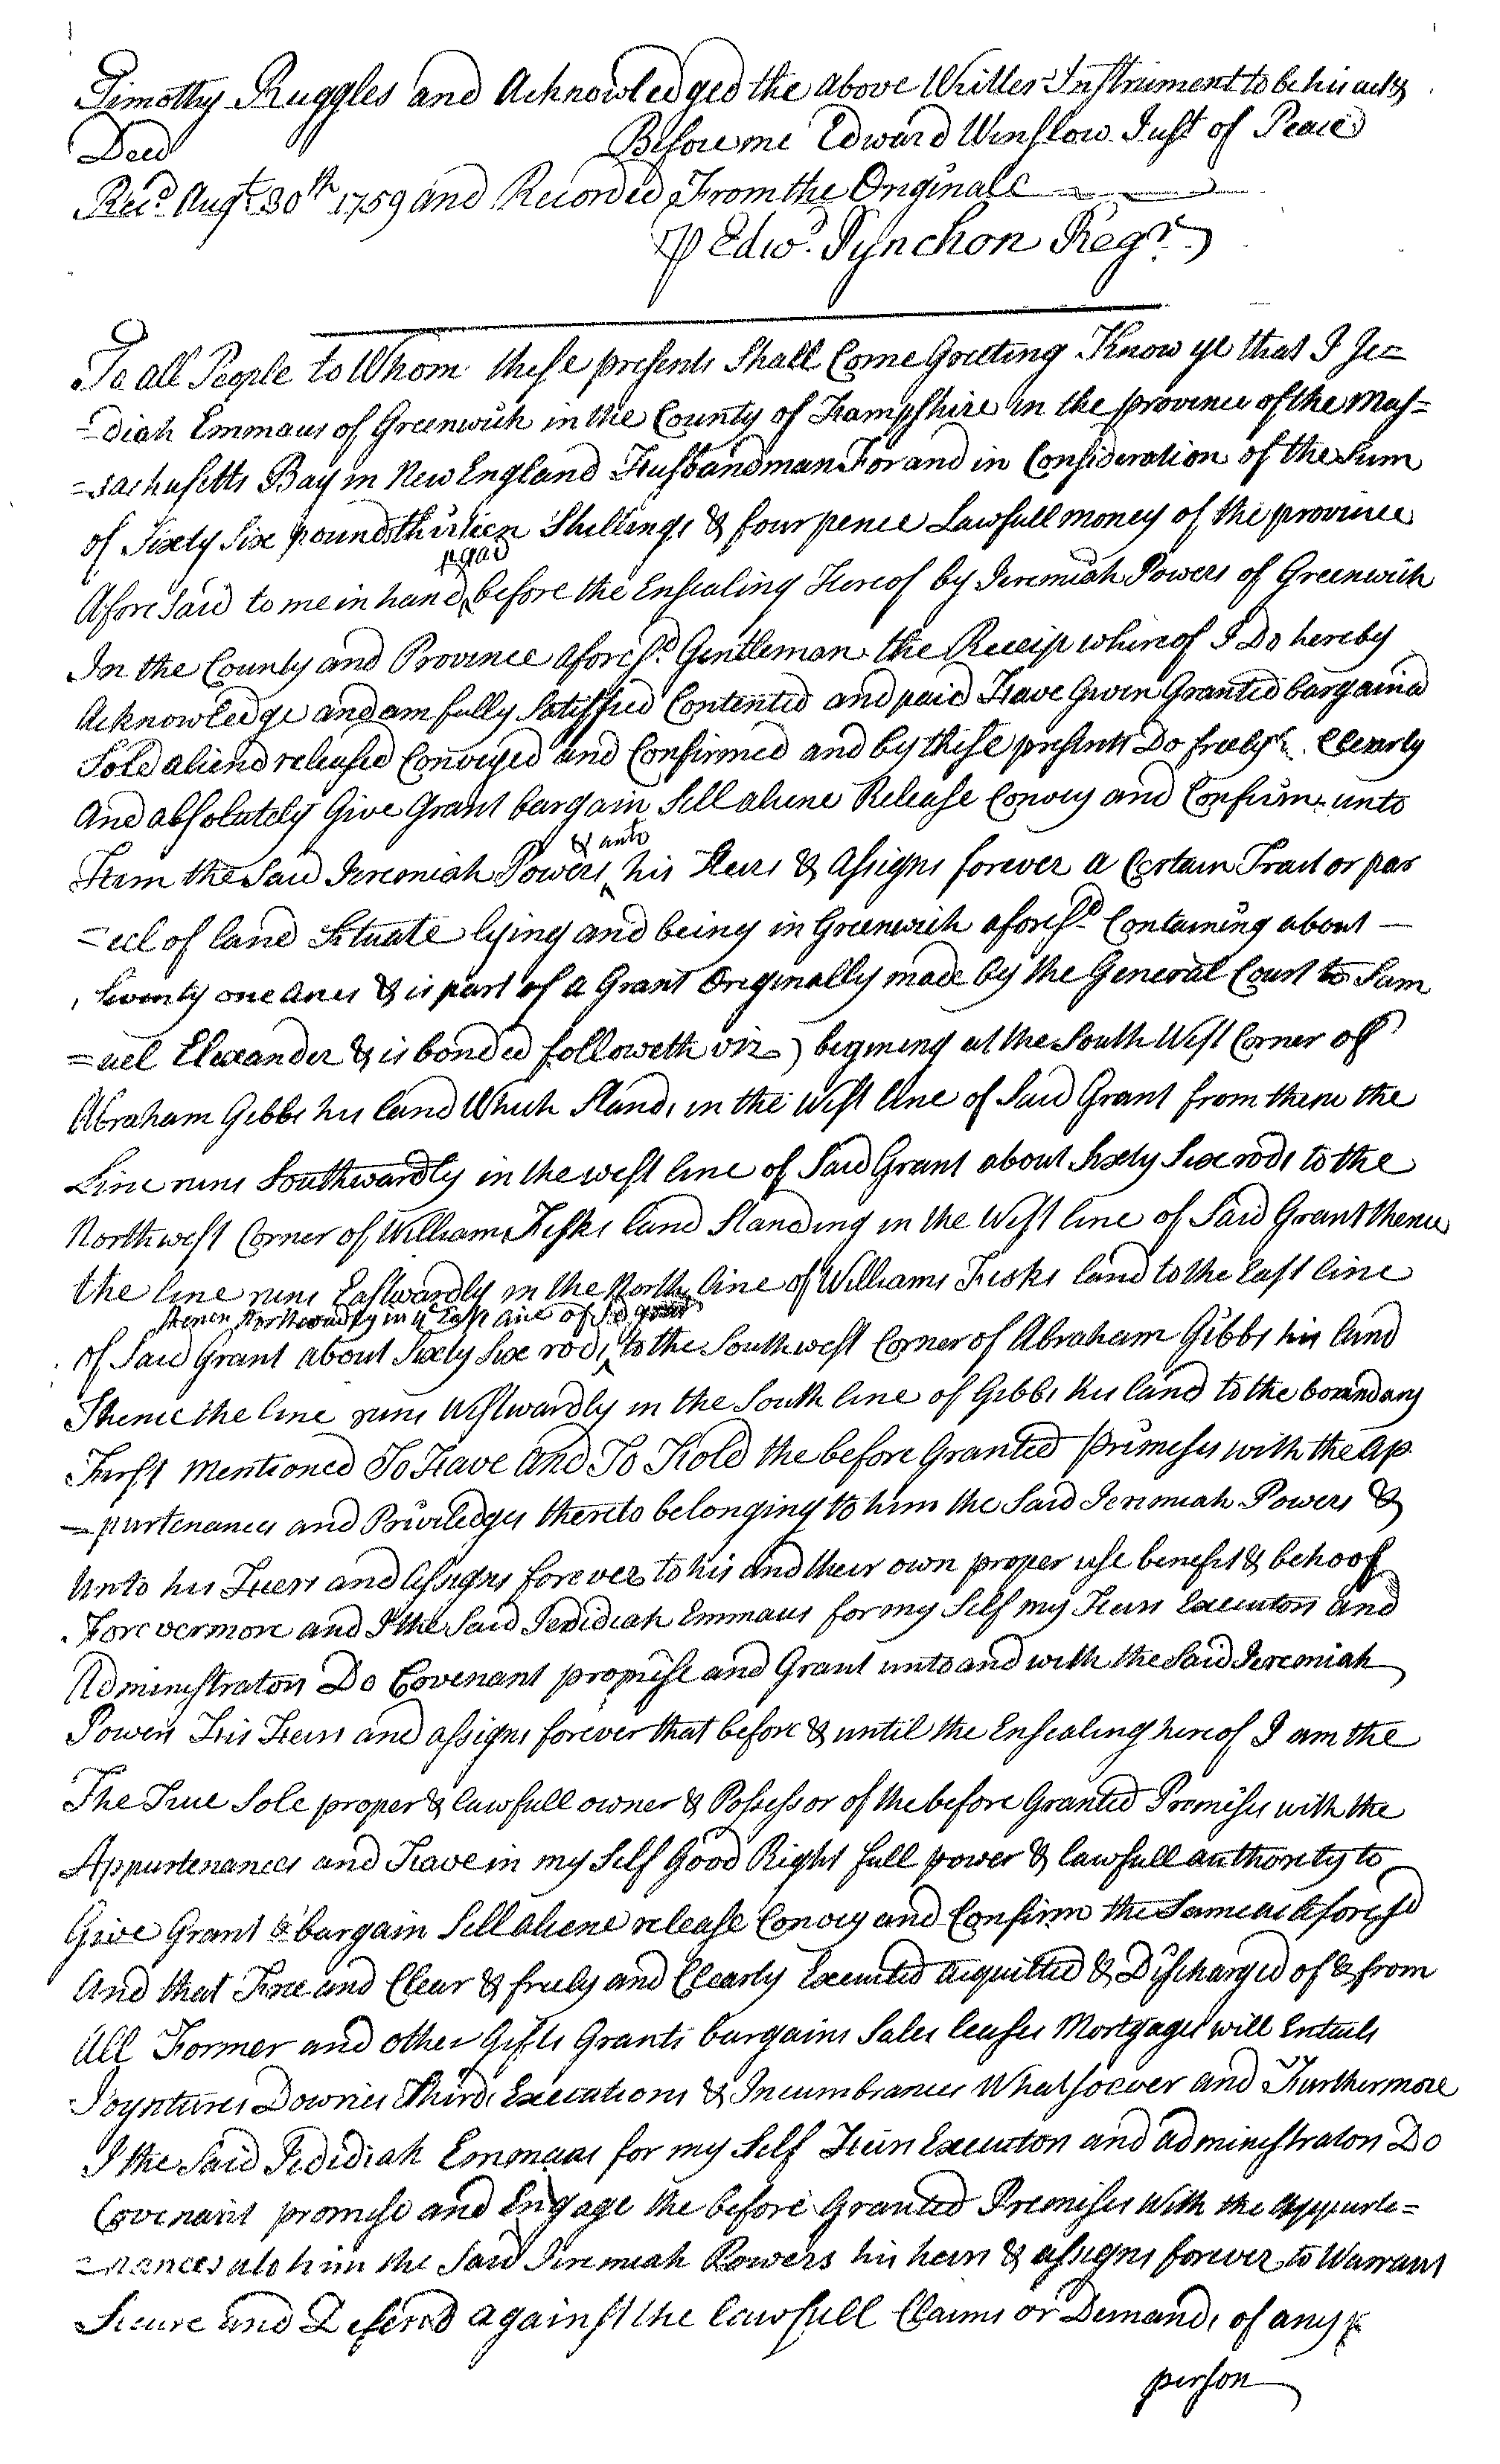 Timothy Ruggles and Acknowledged the above Written Instrument to be his act &
Deed Before me Edward Winslow Just of Peace
Recd. Augt. 30th 1759 and Recorded From the Originall
P Edwd. Pynchon Regr.
To all People to Whom these presents Shall Come Greeting Know ye that I Je=
=diah Emmaus of Greenwich in the County of Hampshire in the province of the Mas=
=sachusetts Bay in New England Husbandman For and in Consideration of the Sum
of Sixty Six pounds thirteen Shillings & four pence Lawfull money of the province
paid
Afore Said to me in hand ^ before the Ensealing Hereof by Jeremiah Powers of Greenwich
In the County and Province aforesd. Gentleman the Receip whereof I Do hereby
Acknowledge and am fully Satisfied Contented and paid Have Given Granted bargaind
Sold aliend released Conveyed and Confirmed and by these presents Do freely Clearly
And absolutely Give Grant bargain Sell aliene Release Convey and Confirm unto
& unto
Him the Said Jeremiah Powers ^ his Heirs & Assigns forever a Certain Tract or par
=cel of land Situate lying and being in Greenwich aforesd. Containing about —
twenty one acres & is part of a Grant Originally made by the General Court to Sam
=uel Elexander & is bonded followeth viz) begining at the South West Corner of
Abraham Gibbs his land Which Stands in the West line of Said Grant from thence the
Line runs Southwardly in the west line of Said Grant about Sixty Six rods to the
Northwest Corner of Williams Fisks land Standing in the West line of Said Grant thence
the line runs Eastwardly in the North line of Williams Fisks land to the East line
thence Northwardly in ye East line of sd grant
of Said Grant about Sixty Six rods ^ to the Southwest Corner of Abraham Gibbs his land
Thence the line runs Westwardly in the South line of Gibbs his land to the boundary
First mentioned To Have and To Hold the before Granted Premises with the Ap
=purtenances and Priviledges thereto belonging to him the Said Jeremiah Powers &
Unto his Heirs and Assigns forever to his and their own proper use benefit & behoof
Forevermore and I the Said Jedidiah Emmaus for my Self my Heirs Executors and
Administrators Do Covenant promise and Grant unto and with the Said Jeremiah
Powers His Heirs and assigns forever that before & until the Ensealing hereof I am the
The True Sole proper & lawfull owner & Possessor of the before Granted Premises with the
Appurtenances and Have in my Self Good Right full power & lawfull authority to
Give Grant & bargain Sell aliene release Convey and Confirm the Same as aforesd
And that Free and Clear & freely and Clearly Executed acquitted & Discharged of & from
All Former and other Gifts Grants bargains Sales leases Mortgages will Entails
Joyntures Dowries Thirds Executions & Incumbrances Whatsoever and Furthermore
I the Said Jedidiah Emmaus for my Self Heirs Executors and administrators Do
Covenant promise and Engage the before Granted Premises With the Appurte=
=nances to him the Said Jeremiah Powers his heirs & assigns forever to Warrant
Secure and Defend against the lawfull Claims or Demands of any
person